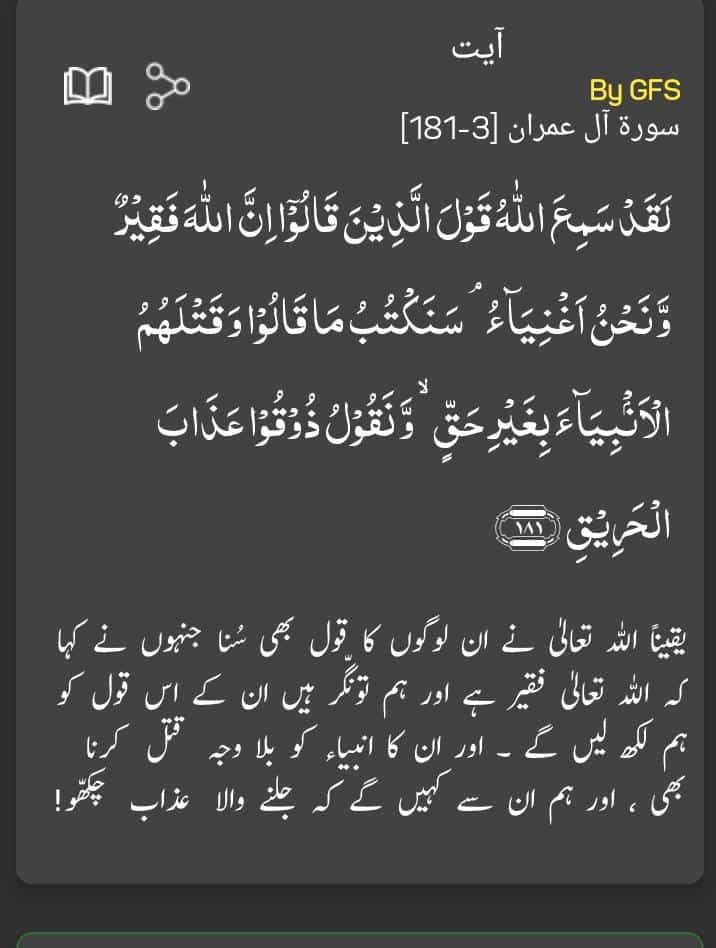 آیت
By GFS
سورة آل عمران [3-181]
لَقَدْ سَمِعَ اللّٰهُ قَوْلَ الَّذِيْنَ قَالُوْۤا اِنَّ اللّٰهَ فَقِيْرٌ
وَّنَحْنُ اَغْنِيَآءُ ۘ سَنَكْتُبُ مَا قَالُوْا وَقَتْلَهُمُ
الْاَنْۢبِيَآءَ بِغَيْرِ حَقٍّ ۙ وَّنَقُوْلُ ذُوْقُوْا عَذَابَ
الْحَرِيْقِ ١٨١
یقیناً اللہ تعالیٰ نے ان لوگوں کا قول بھی سُنا جنہوں نے کہا
کہ اللہ تعالیٰ فقیر ہے اور ہم تونگّر ہیں ان کے اس قول کو
ہم لکھ لیں گے ۔ اور ان کا انبیاء کو بلا وجہ قتل کرنا
بھی ، اور ہم ان سے کہیں گے کہ جلنے والا عذاب چکھّو!